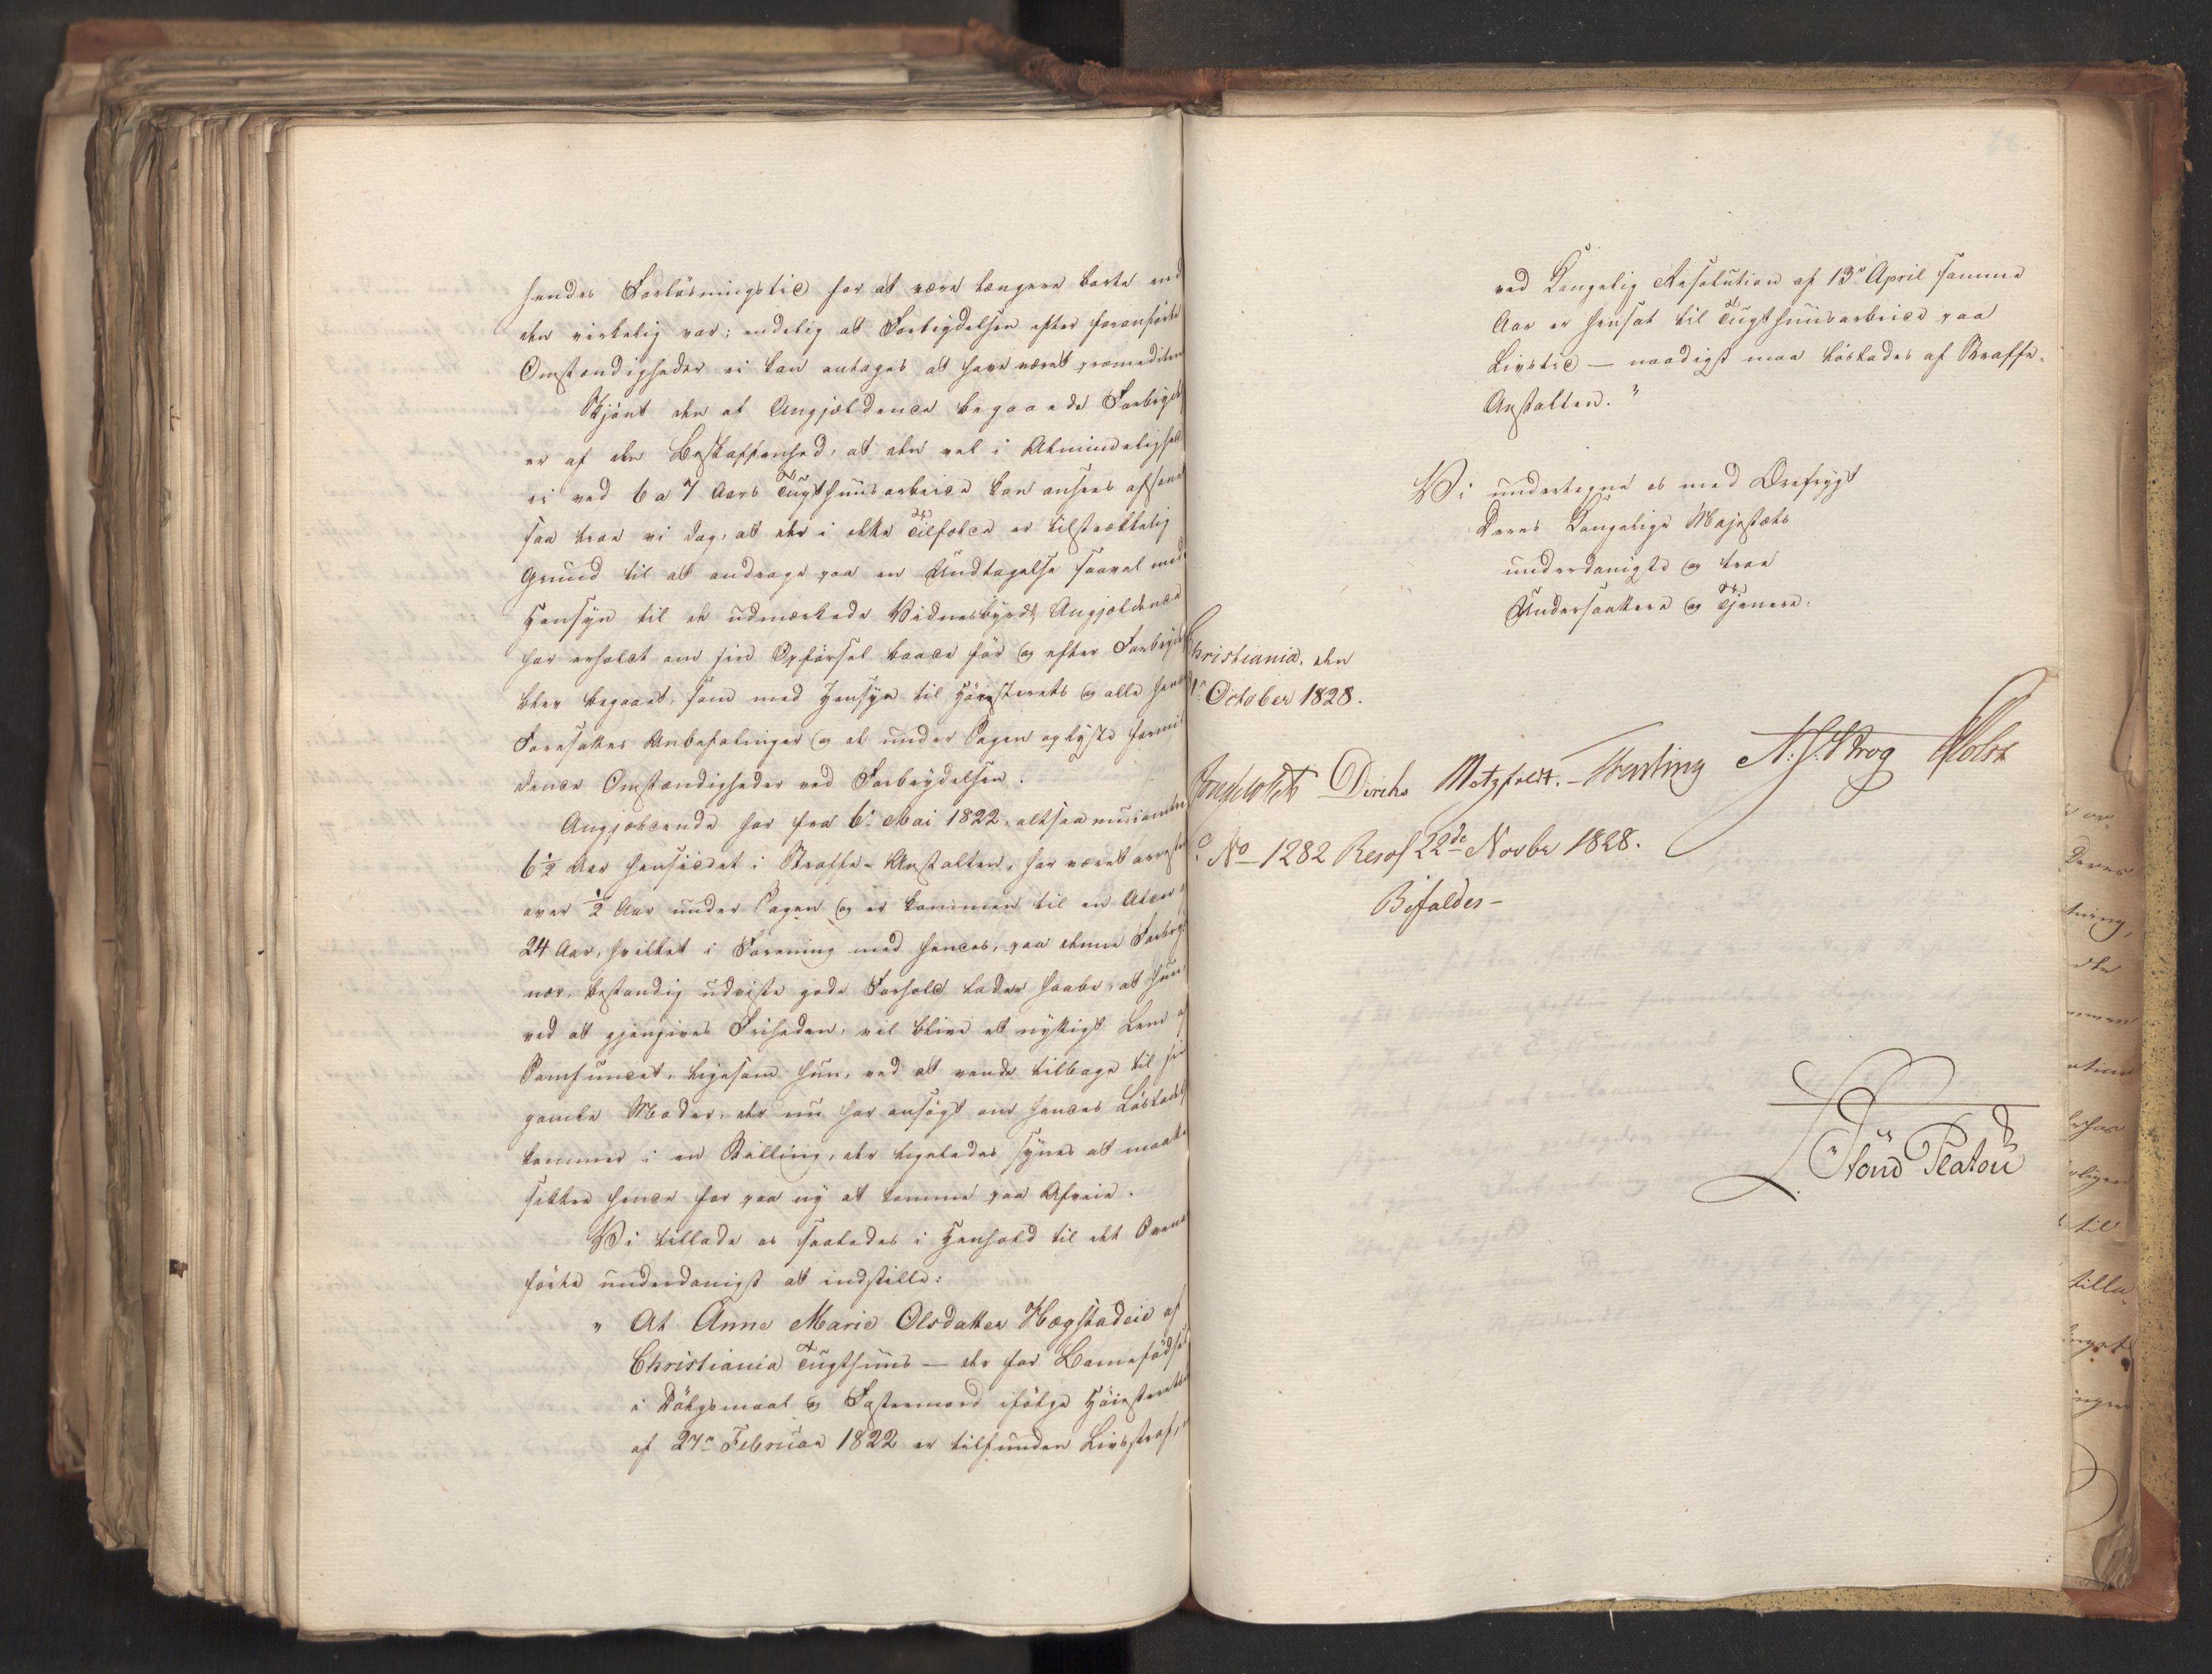 hendes Forløsningstid for at være længere borte end
den virkelig var; endelig at Forbrydelsen efter foranførte
Omstændigheder ei kan antages at have været præmediteret
Skjønt den af Angjældende begaaede Forbrydelse
er af den Beskaffenhed, at den vel i Almindelighed
ei ved 6 a 7 Aars Tugthuusarbeide kan ansees afsonet
saa troe vi dog, at der i dette Tilfælde er tilstrækkelig
Grund til at andrage paa en Undtagelse saavel med
Hensyn til de udmærkede Vidnesbyrd, Angjældende
har erholdt om sin Opførsel baade før og efter Forbrydelsen
blev begaaet, som med Hensyn til Høiesterets og alle hendes
Foresattes Anbefalinger og de under Sagen oplyste formil
dende Omstændigheder ved Forbrydelsen.
Angjældende har fra 6te Mai 1822, altsaa
6½ Aar hensiddet i Straffe-Anstalten, har været arresteret
over ½ Aar under Sagen og er kommen til en Alder af
24 Aar, hvilket i Forening med hendes, paa denne Forbrydelse
nær, bestandig udviste gode Forhold lader haabe, at hun,
ved at gjengives Friheden, vil blive et nyttigt Lem af
Samfundet, ligesom hun, ved at vende tilbage til sin
gamle Moder, der nu har ansøgt om hendes Løsladelse
kommer i en Stilling, der ligeledes synes at maatte
sikkre hende for paa ny at komme paa Afveie.
Vi tillade os saaledes i Henhold til det Oven
førte underdanigst at indstille:
" At Anne Marie Olsdatter Hægstadeie af
Christiania Tugthuus — der for Barnefødsel
i Dølgsmaal og Fostermord ifølge Høiesteretsdom
af 27de Februar 1822 er tilfunden Livsstraf,
ved Kongelig Resolution af 13de April samme
Aar er hensat til Tugthuusarbeide paa
Livstid — naadigst maa løslades af Straffe-
Anstalten."
Vi undertegne os med Ærefrygt
Deres Kongelige Majestæts
underdanigste og troe
Undersaatter og Tjenere.
Christiania, den
October 1828.
Diriks Motzfeldt. Treschow Krog Holst
No 1282 Resol 22de Novbr 1828.
Bifaldes —
Platou